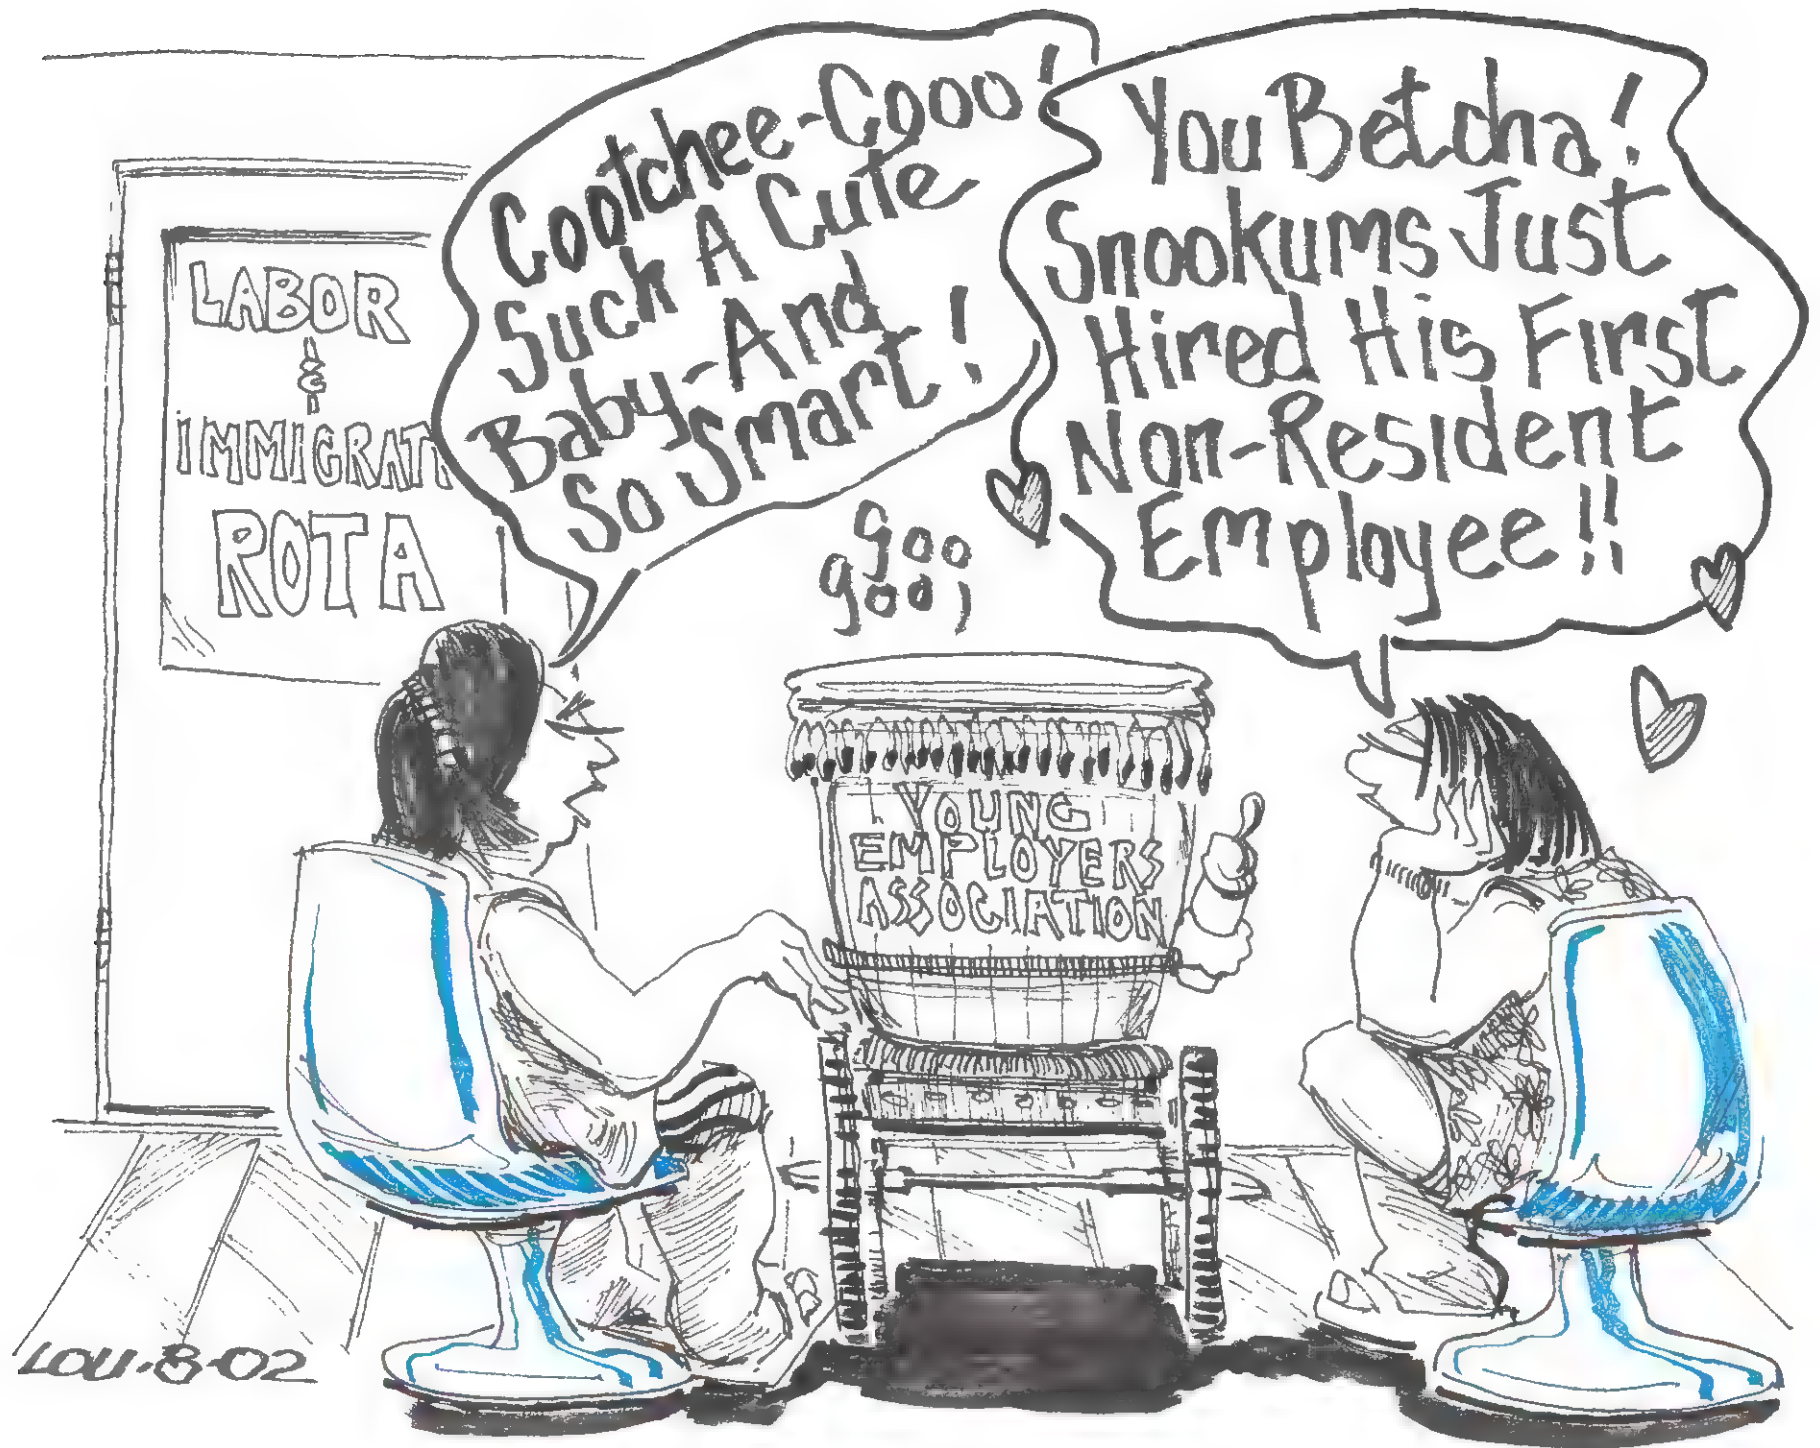 LABOR
&
IMMIGRATI
ROTA
Cootchee-Cooo!
Such A Cute
Baby-And
So Smart!
You Betcha!
Snookums Just
Hired His First
Non-Resident
Employee!!
goo
goo;
YOUNG
EMPLOYERS
ASSOCIATION
LOU-8-02